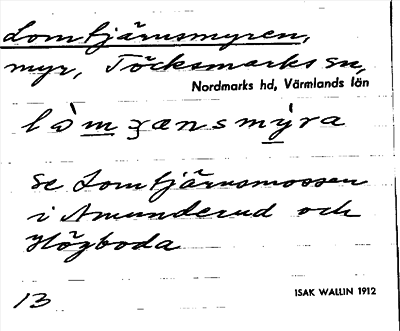 Lomtjärnsmyren,
myr, Töcksmarks sn,
Nordmarks hd, Värmlands län
se Lomtjärnsmossen
i Amunderud och
Högboda
13
ISAK WALLIN 1912